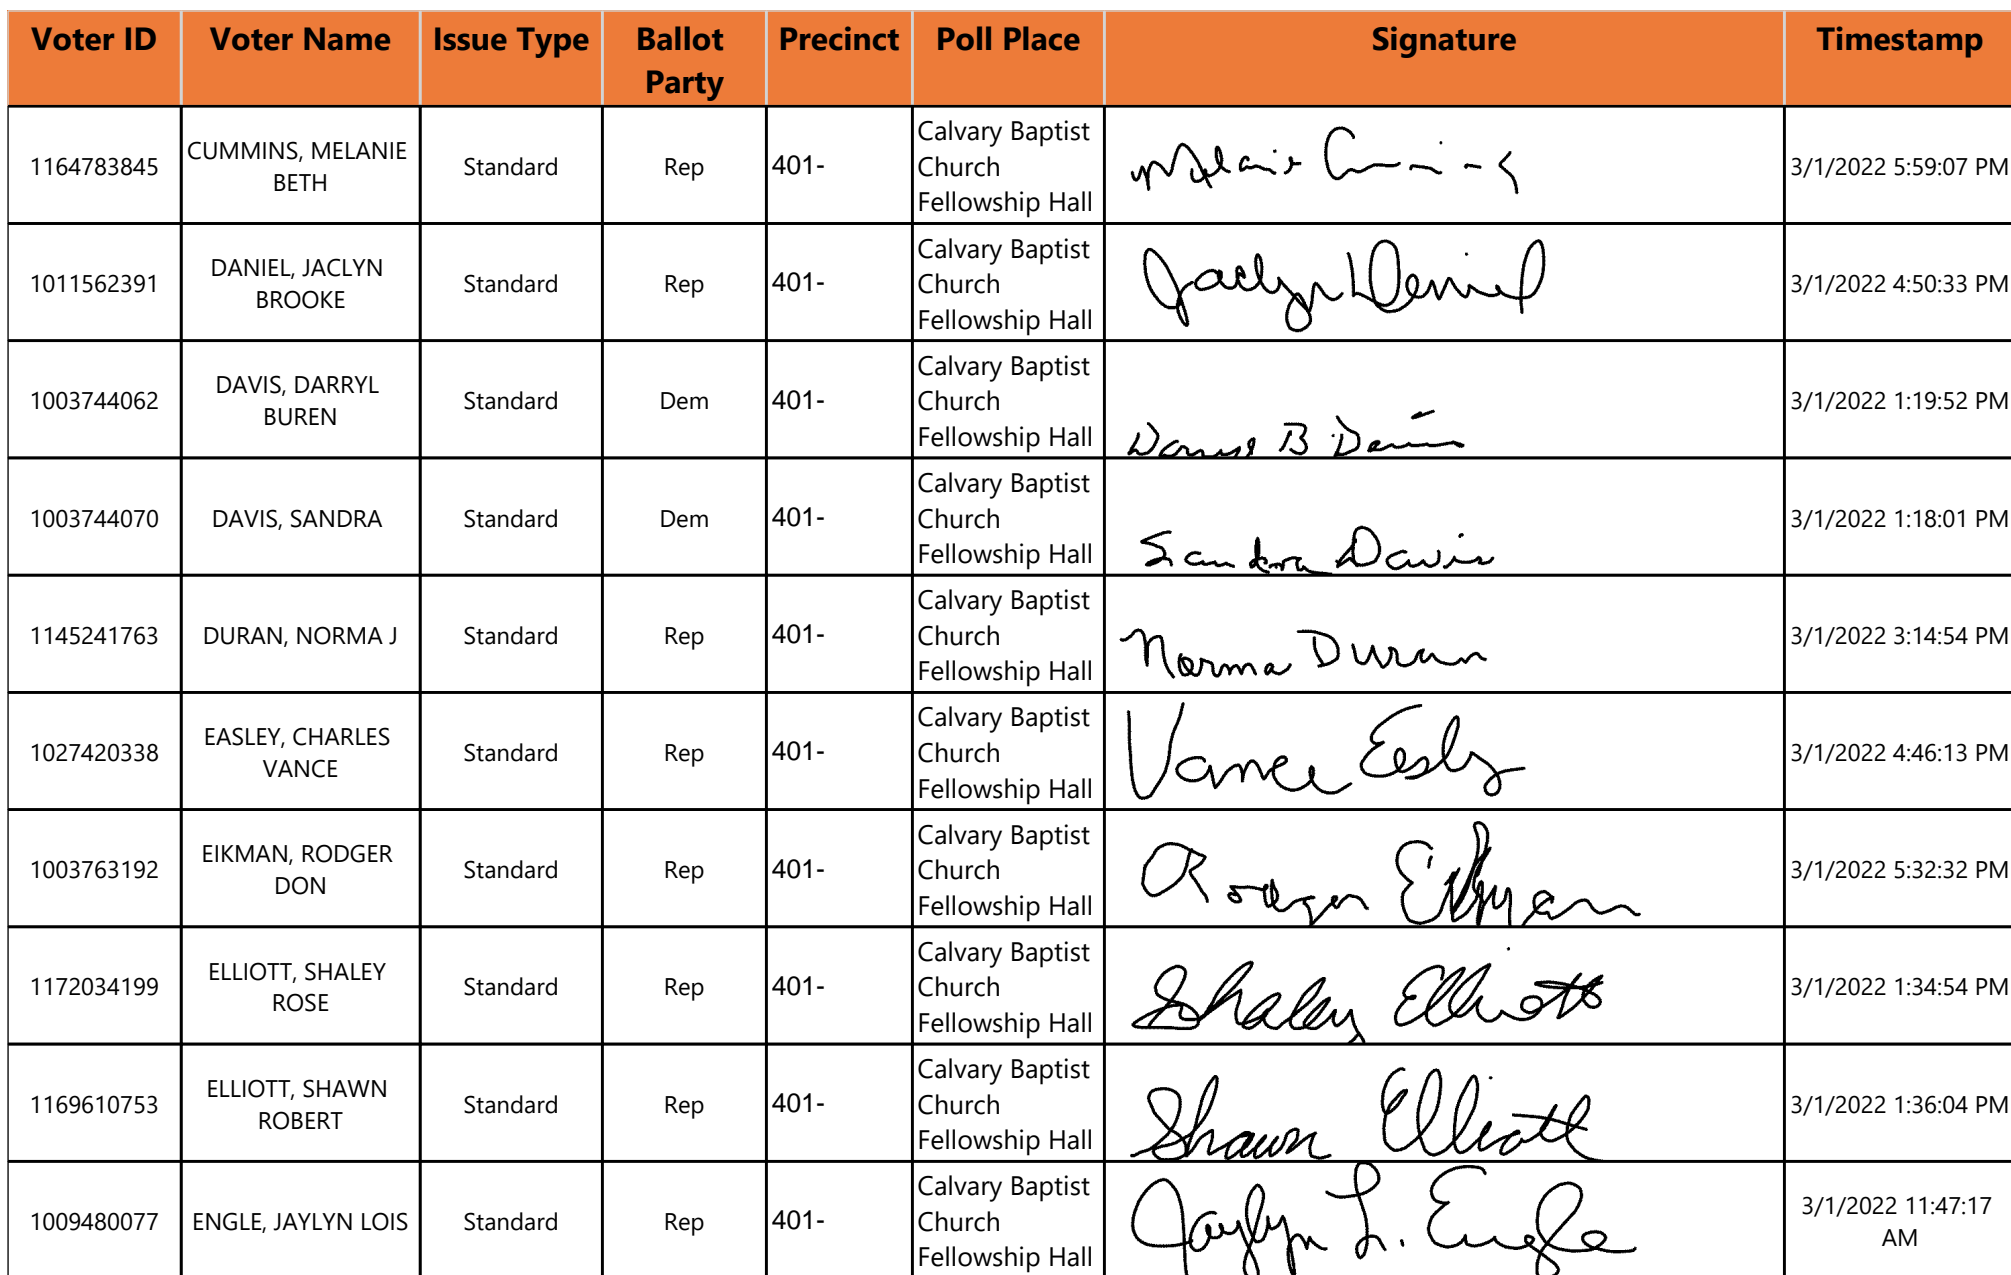 Voter ID Voter Name Issue Type Ballot Party Precinct Poll Place Signature Timestamp
1164783845 CUMMINS, MELANIE BETH Standard Rep 401- Calvary Baptist Church Fellowship Hall Melanie Cummins 3/1/2022 5:59:07 PM
1011562391 DANIEL, JACLYN BROOKE Standard Rep 401- Calvary Baptist Church Fellowship Hall Jaclyn Daniel 3/1/2022 4:50:33 PM
1003744062 DAVIS, DARRYL BUREN Standard Dem 401- Calvary Baptist Church Fellowship Hall Darryl B Davis 3/1/2022 1:19:52 PM
1003744070 DAVIS, SANDRA Standard Dem 401- Calvary Baptist Church Fellowship Hall Sandra Davis 3/1/2022 1:18:01 PM
1145241763 DURAN, NORMA J Standard Rep 401- Calvary Baptist Church Fellowship Hall Norma Duran 3/1/2022 3:14:54 PM
1027420338 EASLEY, CHARLES VANCE Standard Rep 401- Calvary Baptist Church Fellowship Hall Vance Easley 3/1/2022 4:46:13 PM
1003763192 EIKMAN, RODGER DON Standard Rep 401- Calvary Baptist Church Fellowship Hall Rodger Eikman 3/1/2022 5:32:32 PM
1172034199 ELLIOTT, SHALEY ROSE Standard Rep 401- Calvary Baptist Church Fellowship Hall Shaley Elliott 3/1/2022 1:34:54 PM
1169610753 ELLIOTT, SHAWN ROBERT Standard Rep 401- Calvary Baptist Church Fellowship Hall Shawn Elliott 3/1/2022 1:36:04 PM
1009480077 ENGLE, JAYLYN LOIS Standard Rep 401- Calvary Baptist Church Fellowship Hall Jaylyn L. Engle 3/1/2022 11:47:17 AM